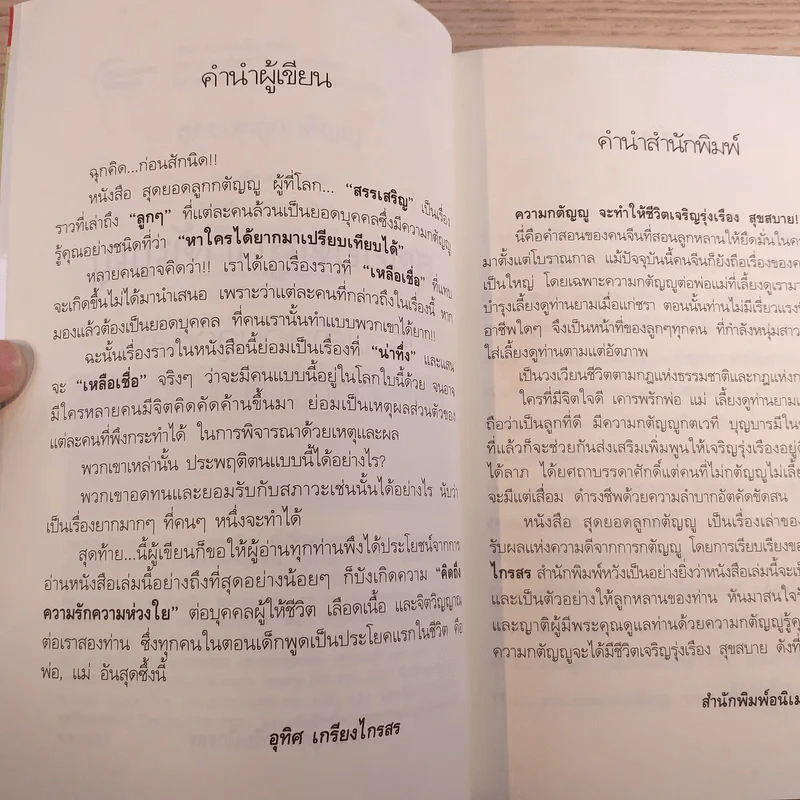 คำนำผู้เขียน
ฉุกคิด...ก่อนสักนิด!!
หนังสือ สุดยอดลูกกตัญญู ผู้ที่โลก... “สรรเสริญ” เป็นเรื่อง
ราวที่เล่าถึง “ลูกๆ” ที่แต่ละคนล้วนเป็นยอดบุคคลซึ่งมีความกตัญญู
รู้คุณอย่างชนิดที่ว่า “หาใครได้ยากมาเปรียบเทียบได้”
หลายคนอาจคิดว่า!! เราได้เอาเรื่องราวที่ “เหลือเชื่อ” ที่แทบ
จะเกิดขึ้นไม่ได้มานำเสนอ เพราะว่าแต่ละคนที่กล่าวถึงในเรื่องนี้ หาก
มองแล้วต้องเป็นยอดบุคคล ที่คนเรานั้นทำแบบพวกเขาได้ยาก!!
ฉะนั้นเรื่องราวในหนังสือนี้ย่อมเป็นเรื่องที่ “น่าทึ่ง” และแสน
จะ “เหลือเชื่อ” จริงๆ ว่าจะมีคนแบบนี้อยู่ในโลกใบนี้ด้วย จนอาจ
มีใครหลายคนมีจิตคิดคัดค้านขึ้นมา ย่อมเป็นเหตุผลส่วนตัวของ
แต่ละคนที่พึงกระทำได้ ในการพิจารณาด้วยเหตุและผล
พวกเขาเหล่านั้น ประพฤติตนแบบนี้ได้อย่างไร?
พวกเขาอดทนและยอมรับกับสภาวะเช่นนั้นได้อย่างไร นับว่า
เป็นเรื่องยากมากๆ ที่คนๆ หนึ่งจะทำได้
สุดท้าย...นี้ผู้เขียนก็ขอให้ผู้อ่านทุกท่านพึงได้ประโยชน์จากการ
อ่านหนังสือเล่มนี้อย่างถึงที่สุดอย่างน้อยๆ ก็บังเกิดความ “คิดถึง
ความรักความห่วงใย” ต่อบุคคลผู้ให้ชีวิต เลือดเนื้อ และจิตวิญญาณ
ต่อเราสองท่าน ซึ่งทุกคนในตอนเด็กพูดเป็นประโยคแรกในชีวิต คือ
พ่อ, แม่ อันสุดซึ้งนี้
อุทิศ เกรียงไกรสร
คำนำสำนักพิมพ์
ความกตัญญู จะทำให้ชีวิตเจริญรุ่งเรือง สุขสบาย!
นี่คือคำสอนของคนจีนที่สอนลูกหลานให้ยึดมั่นในความ
มาตั้งแต่โบราณกาล แม้ปัจจุบันนี้คนจีนก็ยังถือเรื่องของ
เป็นใหญ่ โดยเฉพาะความกตัญญูต่อพ่อแม่ที่เลี้ยงดูเรามา
บำรุงเลี้ยงดูท่านยามเมื่อแก่ชรา ตอนนั้นท่านไม่มีเรี่ยวแรง
อาชีพใดๆ จึงเป็นหน้าที่ของลูกๆทุกคน ที่กำลังหนุ่มสาว
ใส่เลี้ยงดูท่านตามแต่อัตภาพ
เป็นวงเวียนชีวิตตามกฎแห่งธรรมชาติและกฎแห่ง
ใครที่มีจิตใจดี เคารพรักพ่อ แม่ เลี้ยงดูท่านยาม
ถือว่าเป็นลูกที่ดี มีความกตัญญูกตเวที บุญบารมีใน
ที่แล้วก็จะช่วยกันส่งเสริมเพิ่มพูนให้เจริญรุ่งเรืองอยู่ดี
ได้ลาภ ได้ยศถาบรรดาศักดิ์แต่คนที่ไม่กตัญญูไม่เลี้ยง
จะมีแต่เสื่อม ดำรงชีพด้วยความลำบากอัตคัดขัดสน
หนังสือ สุดยอดลูกกตัญญู เป็นเรื่องเล่าของ
รับผลแห่งความดีจากการกตัญญู โดยการเรียบเรียงของ
ไกรสร สำนักพิมพ์หวังเป็นอย่างยิ่งว่าหนังสือเล่มนี้จะ
และเป็นตัวอย่างให้ลูกหลานของท่าน หันมาสนใจ
และญาติผู้มีพระคุณดูแลท่านด้วยความกตัญญูรู้คุณ
ความกตัญญูจะได้มีชีวิตเจริญรุ่งเรือง สุขสบาย ดังที่
สำนักพิมพ์อนิเม